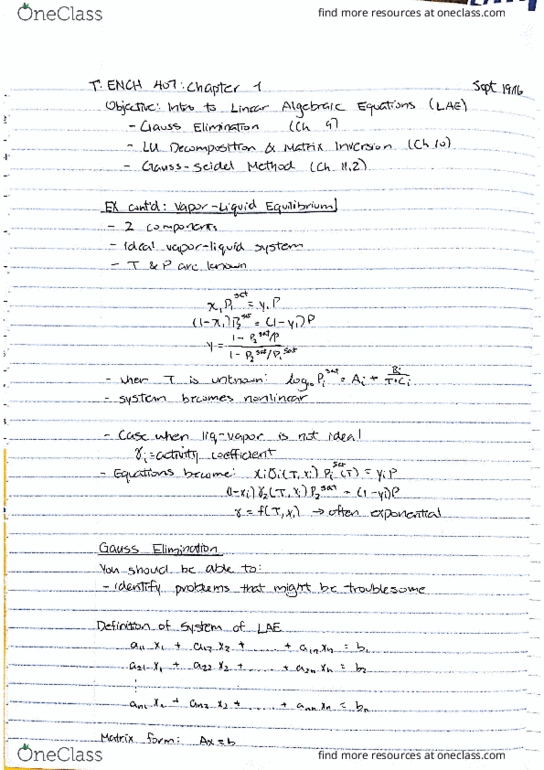 OneClass find more resources at oneclass.com
T: ENCH 407: Chapter 1 Sept 19/16
Objective: Intro to Linear Algebraic Equations (LAE)
- Gauss Elimination (Ch 9)
- LU Decomposition & Matrix Inversion (Ch 10)
- Gauss-Seidel Method (Ch 11.2)
EX cont'd: Vapor-Liquid Equilibrium
- 2 components
- Ideal vapor-liquid system
- T & P are known
x₁P₁ˢᵃᵗ = y₁P
(1-x₁)P₂ˢᵃᵗ = (1-y₁)P
y = (1 - P₂ˢᵃᵗ/P) / (1 - P₂ˢᵃᵗ/P₁ˢᵃᵗ)
- when T is unknown: log₁₀ Pᵢˢᵃᵗ = Aᵢ + Bᵢ/(T+Cᵢ)
- system becomes nonlinear
- Case when liq-vapor is not ideal
γᵢ = activity coefficient
- Equations become: xᵢγᵢ(T,xᵢ) Pᵢˢᵃᵗ(T) = yᵢP
(1-xᵢ)γ₂(T,xᵢ)P₂ˢᵃᵗ = (1-yᵢ)P
γ = f(T,xᵢ) → often exponential
Gauss Elimination
You should be able to:
- identify problems that might be troublesome
Definition of System of LAE
a₁₁x₁ + a₁₂x₂ + ...... + a₁ₙxₙ = b₁
a₂₁x₁ + a₂₂x₂ + ...... + a₂ₙxₙ = b₂
⋮
aₙ₁x₁ + aₙ₂x₂ + ...... + aₙₙxₙ = bₙ
Matrix form: Ax=b
OneClass find more resources at oneclass.com